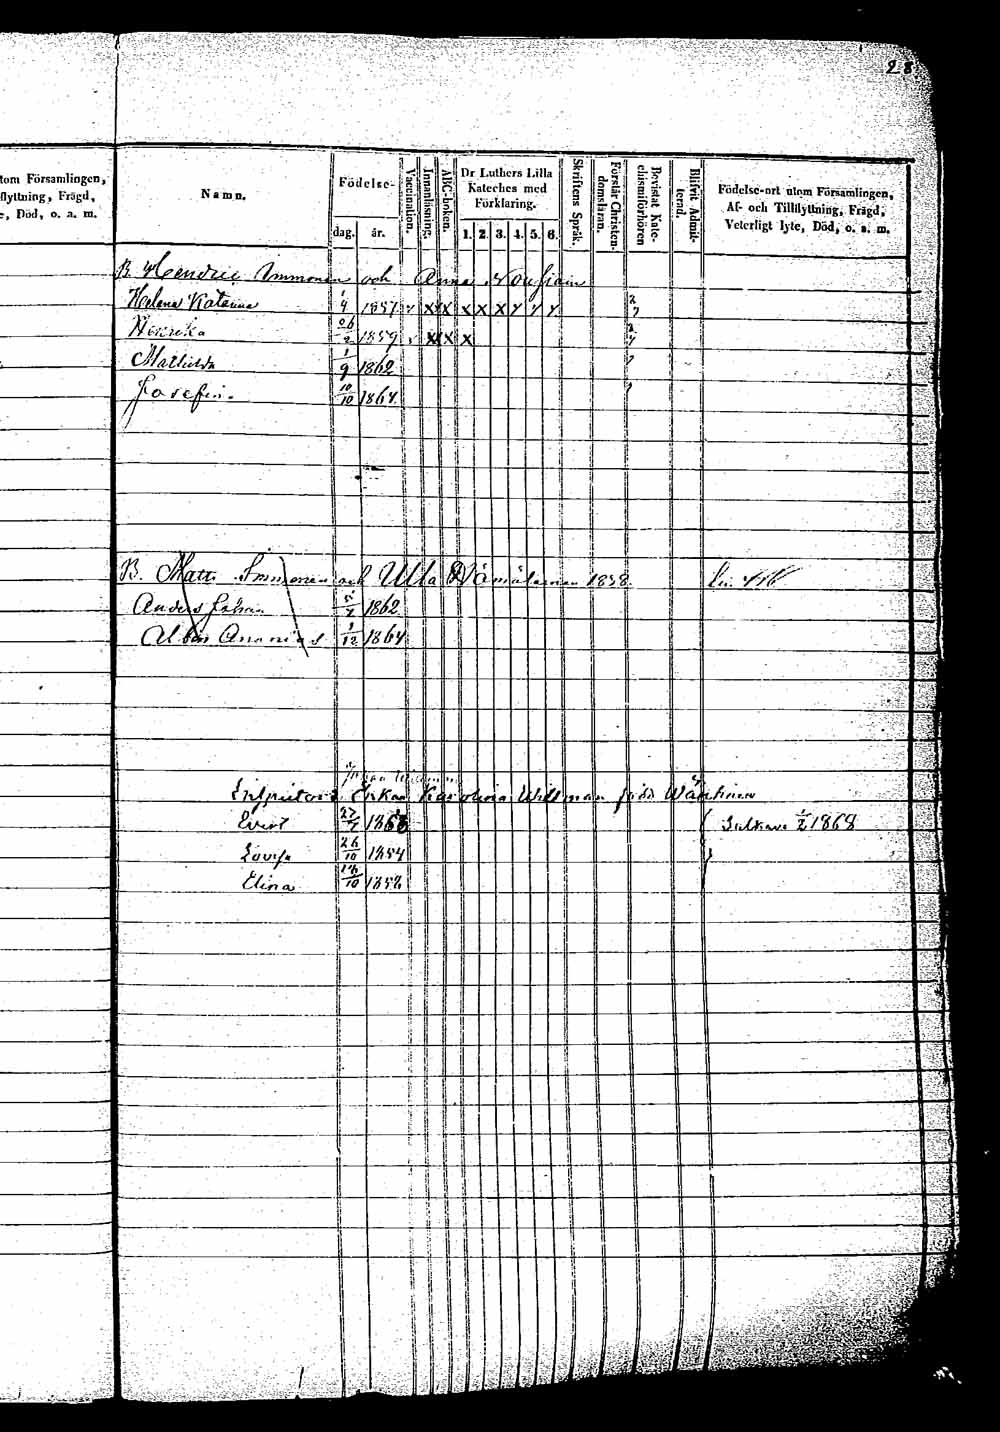 28
tom Församlingen,
flyttning, Frägd,
e, Död, o. a. m.
Namn.
Födelse-
dag. år.
Vaccination.
Innanläsning.
ABC-boken.
Dr Luthers Lilla
Kateches med
Förklaring.
1. 2. 3. 4. 5. 6.
Skriftens Språk.
Förstår Christen-
domsläran.
Bevistat Kate-
chismiförhören
Blifvit Admit-
terad.
Födelse-ort utom Församlingen,
Af- och Tillflyttning, Frägd,
Veterligt lyte, Död, o. a. m.
B. Hendric Immonen och Anna Nousiain
Helena Katarina 1/4 1857 v x x x x x x y y y
Henrika 26/2 1859 v x x x x
Mathilda 1/9 1862
Josefin. 10/10 1864
B. Matts Immonen och Ulla 1838.
Anders Johan 5/7 1862
Albin Ananias 1/12 1864
Enkan Karolina Willman född
Evert 27/7
Sulkava 1868
Lovisa 26/10 1854
Elina 10 1858